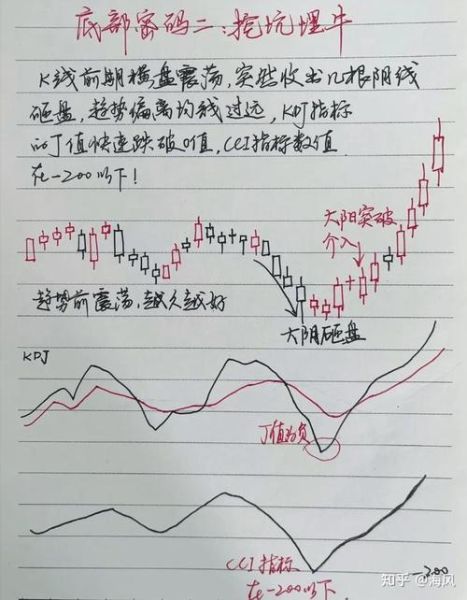 底部密码二:挖坑埋牛
K线前期横盘震荡,突然收出几根阴线
砸盘,趋势偏离均线过远,KDJ指标
的J值快速跌破0值,CCI指标数值
在-200以下!
大阳突破
介入
趋势前震荡,越久越好
大阴砸盘
KDJ
J值为负
CCI指标
在-200以下
-200
知乎 @海风